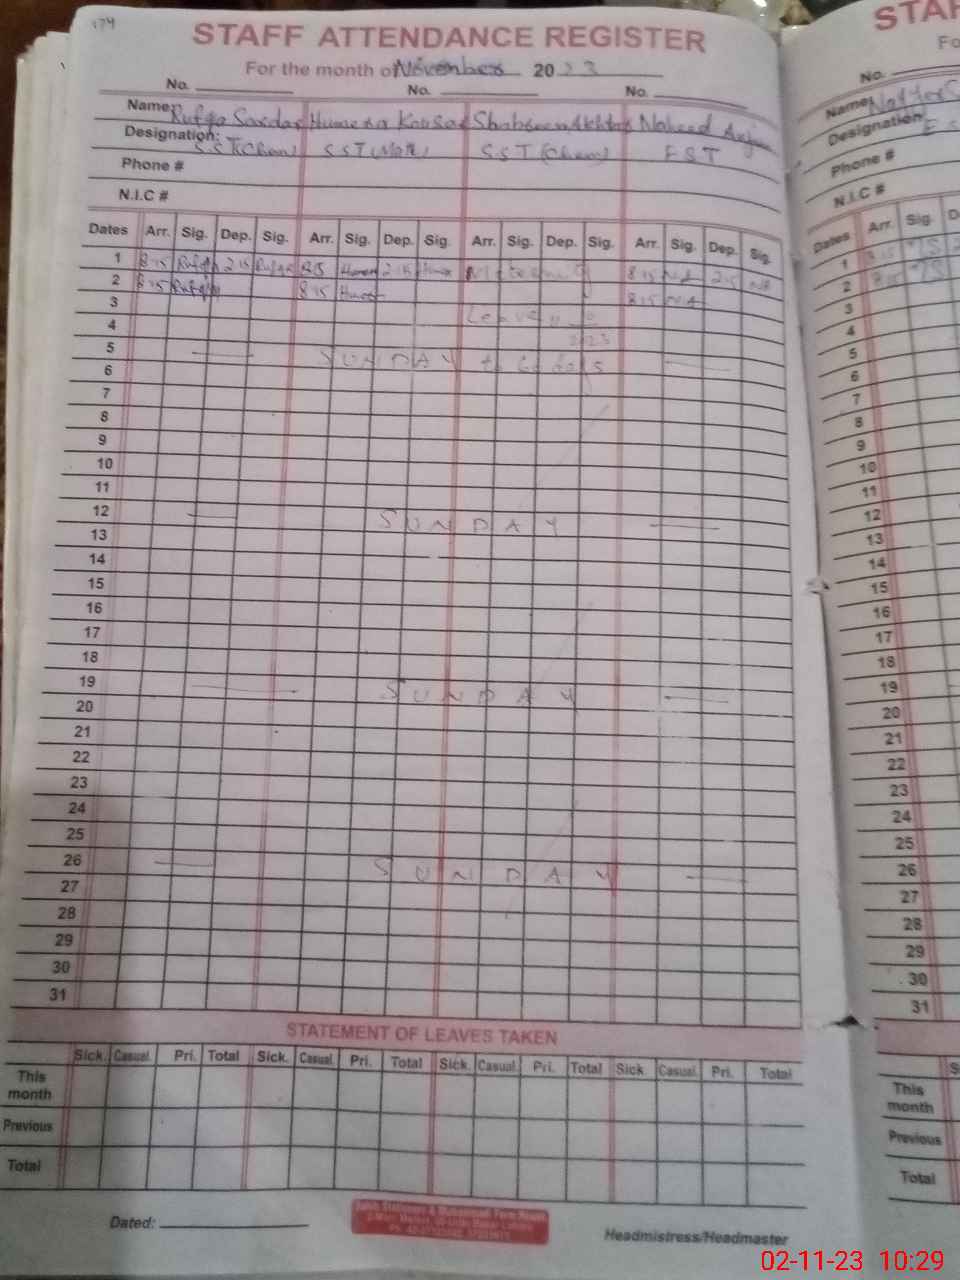 179
STAFF ATTENDANCE REGISTER
For the month of November 2023
No. No. No.
Name: Rufqa Sardar Humera Kausar Shabreen Akhtar Naheed Anjum
Designation: S.ST(Chem) SST(Math) S.ST (Chem) EST
Phone #
N.I.C #
Dates Arr. Sig. Dep. Sig. Arr. Sig. Dep. Sig. Arr. Sig. Dep. Sig. Arr. Sig. Dep. Sig.
1 8:15 Rufqa 2:15 Rufqa 8:15 Humera 2:15 8:15 NA 2:15 NA
2 8:15 Rufqa 8:15 8:15 NA
3 Leave
4 2023
5 SUNDAY to
6
7
8
9
10
11
12 SUNDAY
13
14
15
16
17
18
19 SUNDAY
20
21
22
23
24
25
26 SUNDAY
27
28
29
30
31
STATEMENT OF LEAVES TAKEN
Sick. Casual. Pri. Total Sick. Casual. Pri. Total Sick. Casual. Pri. Total Sick Casual. Pri. Total
This month
Previous
Total
Dated:
Headmistress/Headmaster
STAF
Fo
No.
Name
Designation
Phone #
N.I.C #
Dates Arr. Sig. D
1 8:15
2 8:15
3
4
5
6
7
8
9
10
11
12
13
14
15
16
17
18
19
20
21
22
23
24
25
26
27
28
29
30
31
S
This month
Previous
Total
02-11-23 10:29